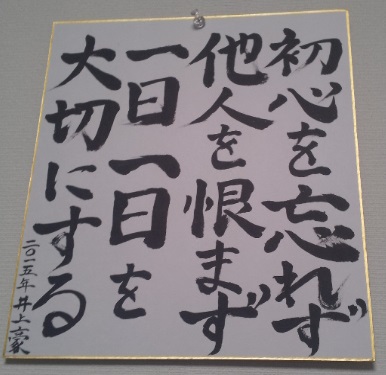 初心を忘れず
他人を恨まず
一日一日を
大切にする
二〇一五年 井上豪